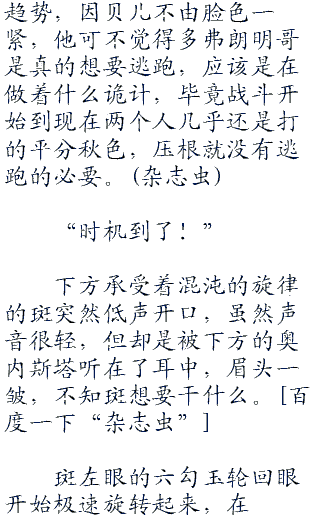 趋势，因贝儿不由脸色一
紧，他可不觉得多弗朗明哥
是真的想要逃跑，应该是在
做着什么诡计，毕竟战斗开
始到现在两个人几乎还是打
的平分秋色，压根就没有逃
跑的必要。(杂志虫)
“时机到了！”
下方承受着混沌的旋律
的斑突然低声开口，虽然声
音很轻，但却是被下方的奥
内斯塔听在了耳中，眉头一
皱，不知斑想要干什么。[百
度一下“杂志虫”]
斑左眼的六勾玉轮回眼
开始极速旋转起来，在